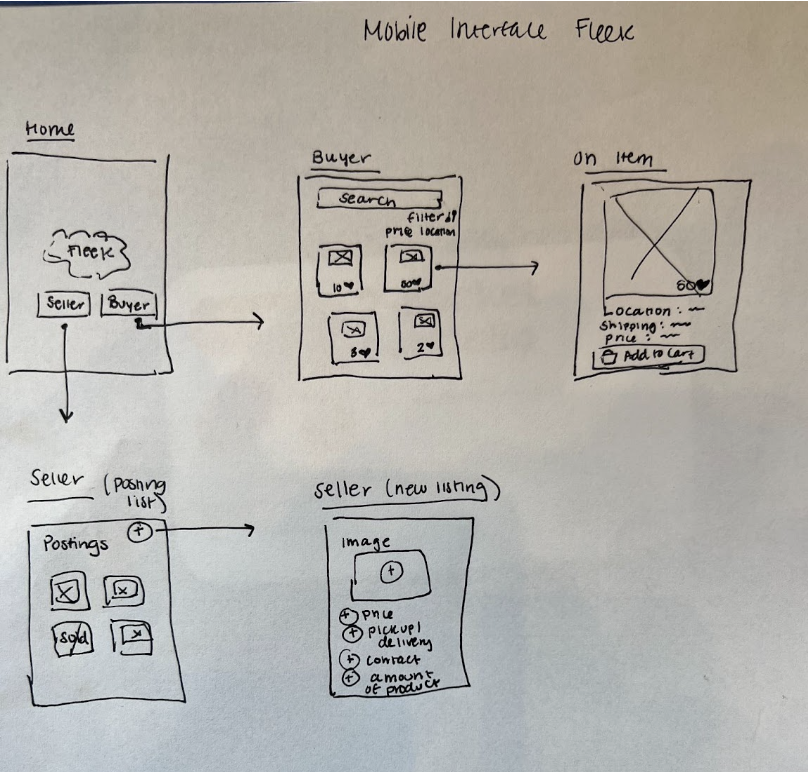 Mobile Interface Fleek
Home
Fleek
Seller
Buyer
Buyer
Search
filter
price location
10
60
8
2
On Item
50
Location:
Shipping:
price:
Add to Cart
Seller (posting
list)
Postings
+
Sold
Seller (new listing)
image
+
+ price
+ pick up/
delivery
+ contact
+ amount
of product